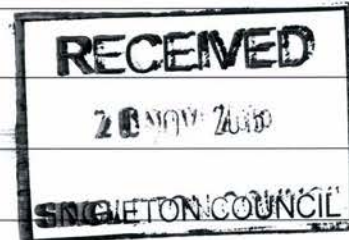 RECEIVED
NOV
SINGLETON COUNCIL